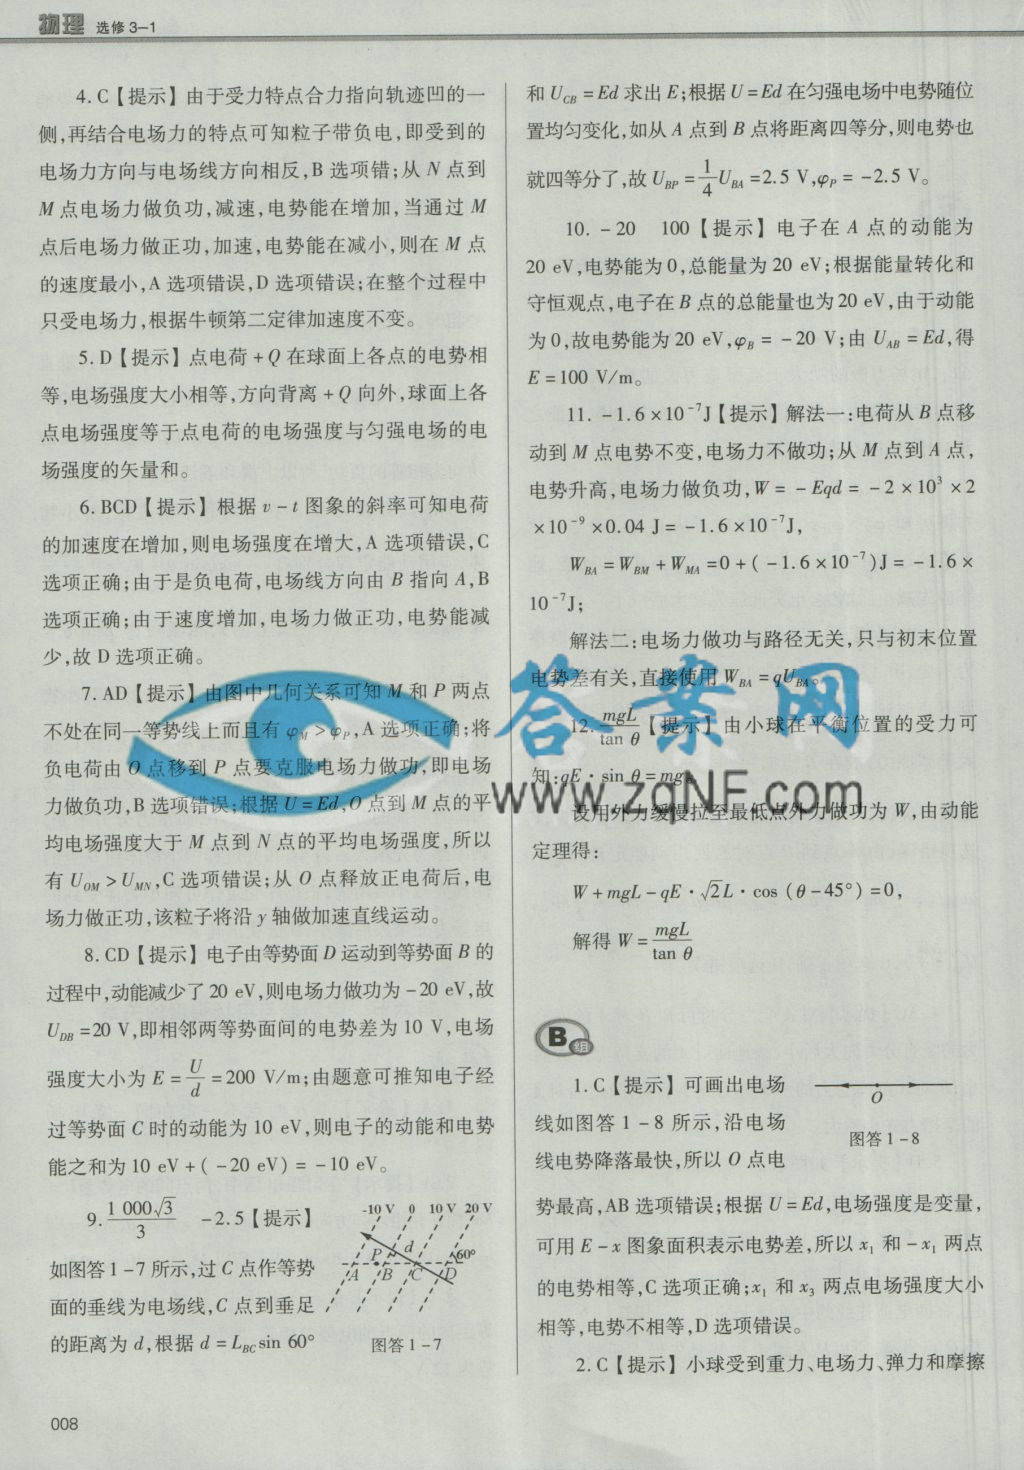 物理 选修3-1
4.C【提示】由于受力特点合力指向轨迹凹的一
侧,再结合电场力的特点可知粒子带负电,即受到的
电场力方向与电场线方向相反,B 选项错;从 N 点到
M 点电场力做负功,减速,电势能在增加,当通过 M
点后电场力做正功,加速,电势能在减小,则在 M 点
的速度最小,A 选项错误,D 选项错误;在整个过程中
只受电场力,根据牛顿第二定律加速度不变。
5.D【提示】点电荷 +Q 在球面上各点的电势相
等,电场强度大小相等,方向背离 +Q 向外,球面上各
点电场强度等于点电荷的电场强度与匀强电场的电
场强度的矢量和。
6.BCD【提示】根据 v-t 图象的斜率可知电荷
的加速度在增加,则电场强度在增大,A 选项错误,C
选项正确;由于是负电荷,电场线方向由 B 指向 A,B
选项正确;由于速度增加,电场力做正功,电势能减
少,故 D 选项正确。
7.AD【提示】由图中几何关系可知 M 和 P 两点
不处在同一等势线上而且有 φM>φP,A 选项正确;将
负电荷由 O 点移到 P 点要克服电场力做功,即电场
力做负功,B 选项错误;根据 U=Ed,O 点到 M 点的平
均电场强度大于 M 点到 N 点的平均电场强度,所以
有 UOM>UMN,C 选项错误;从 O 点释放正电荷后,电
场力做正功,该粒子将沿 y 轴做加速直线运动。
8.CD【提示】电子由等势面 D 运动到等势面 B 的
过程中,动能减少了 20 eV,则电场力做功为 -20 eV,故
UDB=20 V,即相邻两等势面间的电势差为 10 V,电场
强度大小为 E=U/d=200 V/m;由题意可推知电子经
过等势面 C 时的动能为 10 eV,则电子的动能和电势
能之和为 10 eV+(-20 eV)=-10 eV。
9. 1 000√3/3 -2.5【提示】
如图答1-7所示,过 C 点作等势
面的垂线为电场线,C 点到垂足
的距离为 d,根据 d=LBC sin 60°
-10 V 0 10 V 20 V
P d 60°
A B C D
图答1-7
和 UCB=Ed 求出 E;根据 U=Ed 在匀强电场中电势随位
置均匀变化,如从 A 点到 B 点将距离四等分,则电势也
就四等分了,故 UBP=1/4UBA=2.5 V,φP=-2.5 V。
10. -20 100【提示】电子在 A 点的动能为
20 eV,电势能为0,总能量为 20 eV;根据能量转化和
守恒观点,电子在 B 点的总能量也为 20 eV,由于动能
为0,故电势能为 20 eV,φB=-20 V;由 UAB=Ed,得
E=100 V/m。
11. -1.6×10⁻⁷J【提示】解法一:电荷从 B 点移
动到 M 点电势不变,电场力不做功;从 M 点到 A 点,
电势升高,电场力做负功,W=-Eqd=-2×10³×2
×10⁻⁹×0.04 J=-1.6×10⁻⁷J,
WBA=WBM+WMA=0+(-1.6×10⁻⁷)J=-1.6×
10⁻⁷J;
解法二:电场力做功与路径无关,只与初末位置
电势差有关,直接使用 WBA=qUBA。
12. mgL/tan θ【提示】由小球在平衡位置的受力可
知:qE·sin θ=mg。
设用外力缓慢拉至最低点外力做功为 W,由动能
定理得:
W+mgL-qE·√2L·cos(θ-45°)=0,
解得 W=mgL/tan θ
B组
1.C【提示】可画出电场
线如图答1-8所示,沿电场
线电势降落最快,所以 O 点电
O
图答1-8
势最高,AB 选项错误;根据 U=Ed,电场强度是变量,
可用 E-x 图象面积表示电势差,所以 x₁ 和 -x₁ 两点
的电势相等,C 选项正确;x₁ 和 x₃ 两点电场强度大小
相等,电势不相等,D 选项错误。
2.C【提示】小球受到重力、电场力、弹力和摩擦
008
答案网
www.zqNF.com